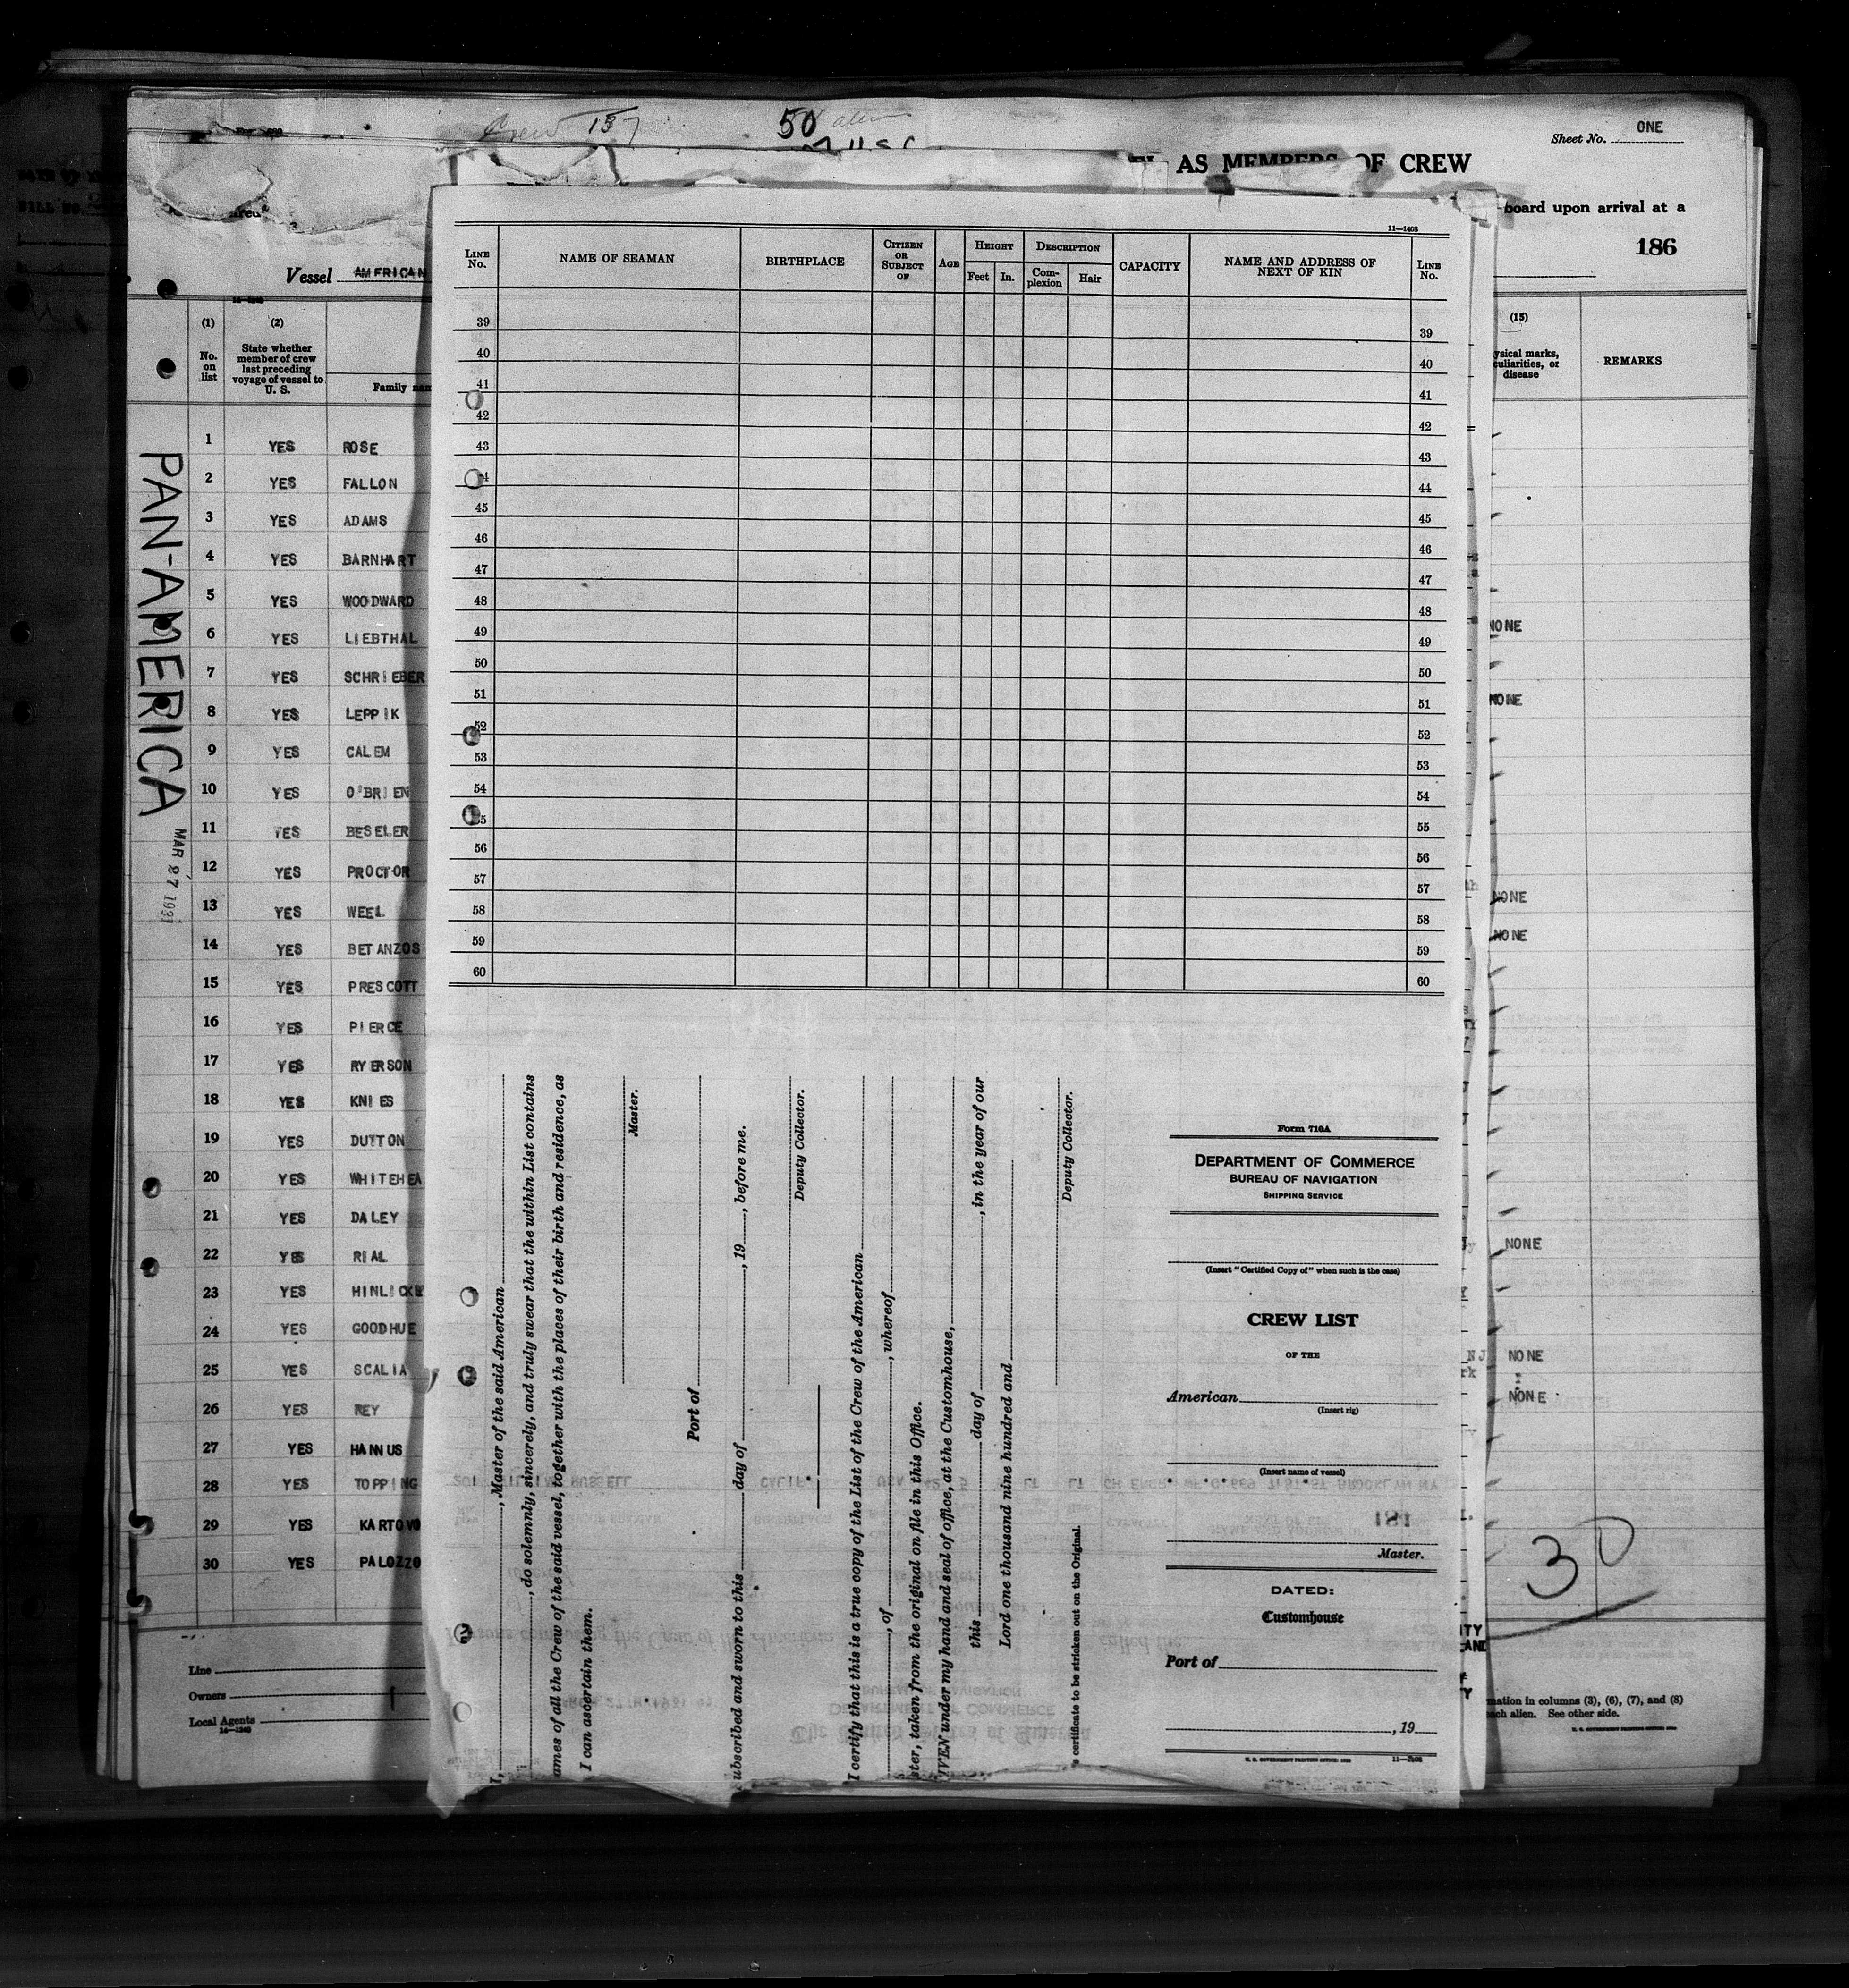 Crew 157
50 alien
Sheet No. ONE
AS MEMBERS OF CREW
board upon arrival at a
186
Vessel AMERICAN
(1)
No. on list
(2)
State whether member of crew last preceding voyage of vessel to U. S.
Family nam
(15)
ysical marks,
culiarities, or
disease
REMARKS
PAN-AMERICA
MAR 27 1931
1 YES ROSE
2 YES FALLON
3 YES ADAMS
4 YES BARNHART
5 YES WOODWARD
6 YES LIEBTHAL NONE
7 YES SCHRIEBER
8 YES LEPPIK NONE
9 YES CALEM
10 YES O'BRIEN
11 YES BESELER
12 YES PROCTOR
13 YES WEEL NONE
14 YES BETANZOS NONE
15 YES PRESCOTT
16 YES PIERCE
17 YES RYERSON
18 YES KNIES
19 YES DUTTON
20 YES WHITEHEA
21 YES DALEY
22 YES RIAL NONE
23 YES HINLICKY
24 YES GOODHUE
25 YES SCALIA NJ NONE
26 YES REY rk NONE
27 YES HANNUS
28 YES TOPPING
29 YES KARTOVO
30 YES PALOZZO
30
Line
Owners
Local Agents
14—1240
mation in columns (3), (6), (7), and (8)
ach alien. See other side.
U. S. GOVERNMENT PRINTING OFFICE
11—1403
LINE No.
NAME OF SEAMAN
BIRTHPLACE
CITIZEN OR SUBJECT OF
AGE
HEIGHT
Feet In.
DESCRIPTION
Complexion Hair
CAPACITY
NAME AND ADDRESS OF NEXT OF KIN
LINE No.
39 39
40 40
41 41
42 42
43 43
44 44
45 45
46 46
47 47
48 48
49 49
50 50
51 51
52 52
53 53
54 54
55 55
56 56
57 57
58 58
59 59
60 60
I, , Master of the said American
, do solemnly, sincerely, and truly swear that the within List contains
ames of all the Crew of the said vessel, together with the places of their birth and residence, as
I can ascertain them.
Master.
Port of
ubscribed and sworn to this day of , 19 , before me.
Deputy Collector.
I certify that this is a true copy of the List of the Crew of the American
, of , whereof
ster, taken from the original on file in this Office.
IVEN under my hand and seal of office, at the Customhouse,
this day of , in the year of our
Lord one thousand nine hundred and
Deputy Collector.
s certificate to be stricken out on the Original.
Form 710A
DEPARTMENT OF COMMERCE
BUREAU OF NAVIGATION
SHIPPING SERVICE
(Insert "Certified Copy of" when such is the case)
CREW LIST
OF THE
American
(Insert rig)
(Insert name of vessel)
Master.
DATED:
Customhouse
Port of
, 19
U. S. GOVERNMENT PRINTING OFFICE